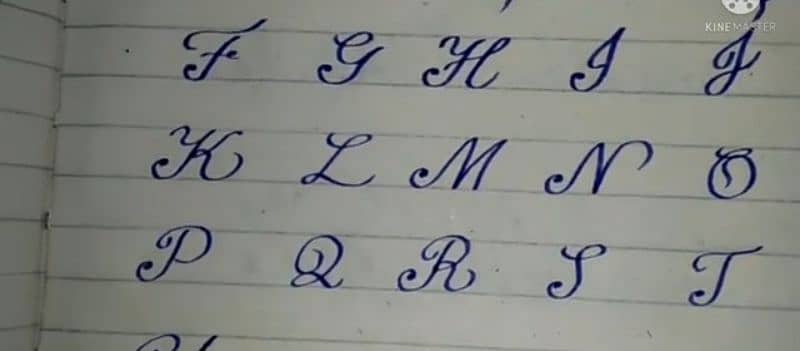 KINEMASTER
F G H I J
K L M N O
P Q R S T